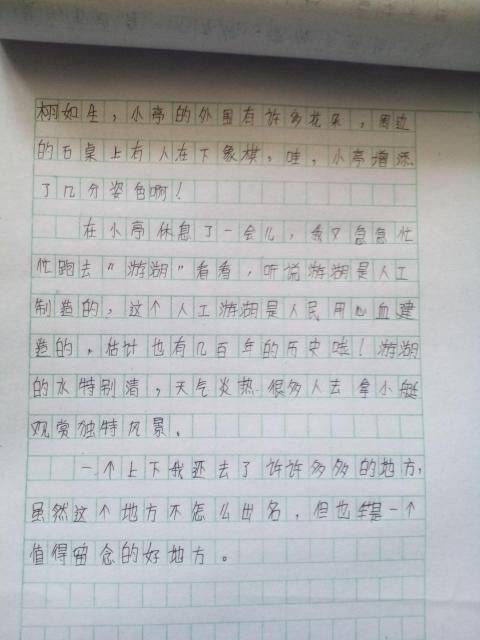 栩如生，小亭的外围有许多花朵，周边
的石桌上有人在下象棋，哇，小亭增添
了几分姿色啊！
在小亭休息了一会儿，我又急急忙
忙跑去“游湖”看看，听说游湖是人工
制造的，这个人工游湖是人民用心血建
造的，估计也有几百年的历史哇！游湖
的水特别清，天气炎热 很多人去拿小艇
观赏独特风景。
一个上下我还去了许许多多的地方，
虽然这个地方不怎么出名，但也算是一个
值得留念的好地方。